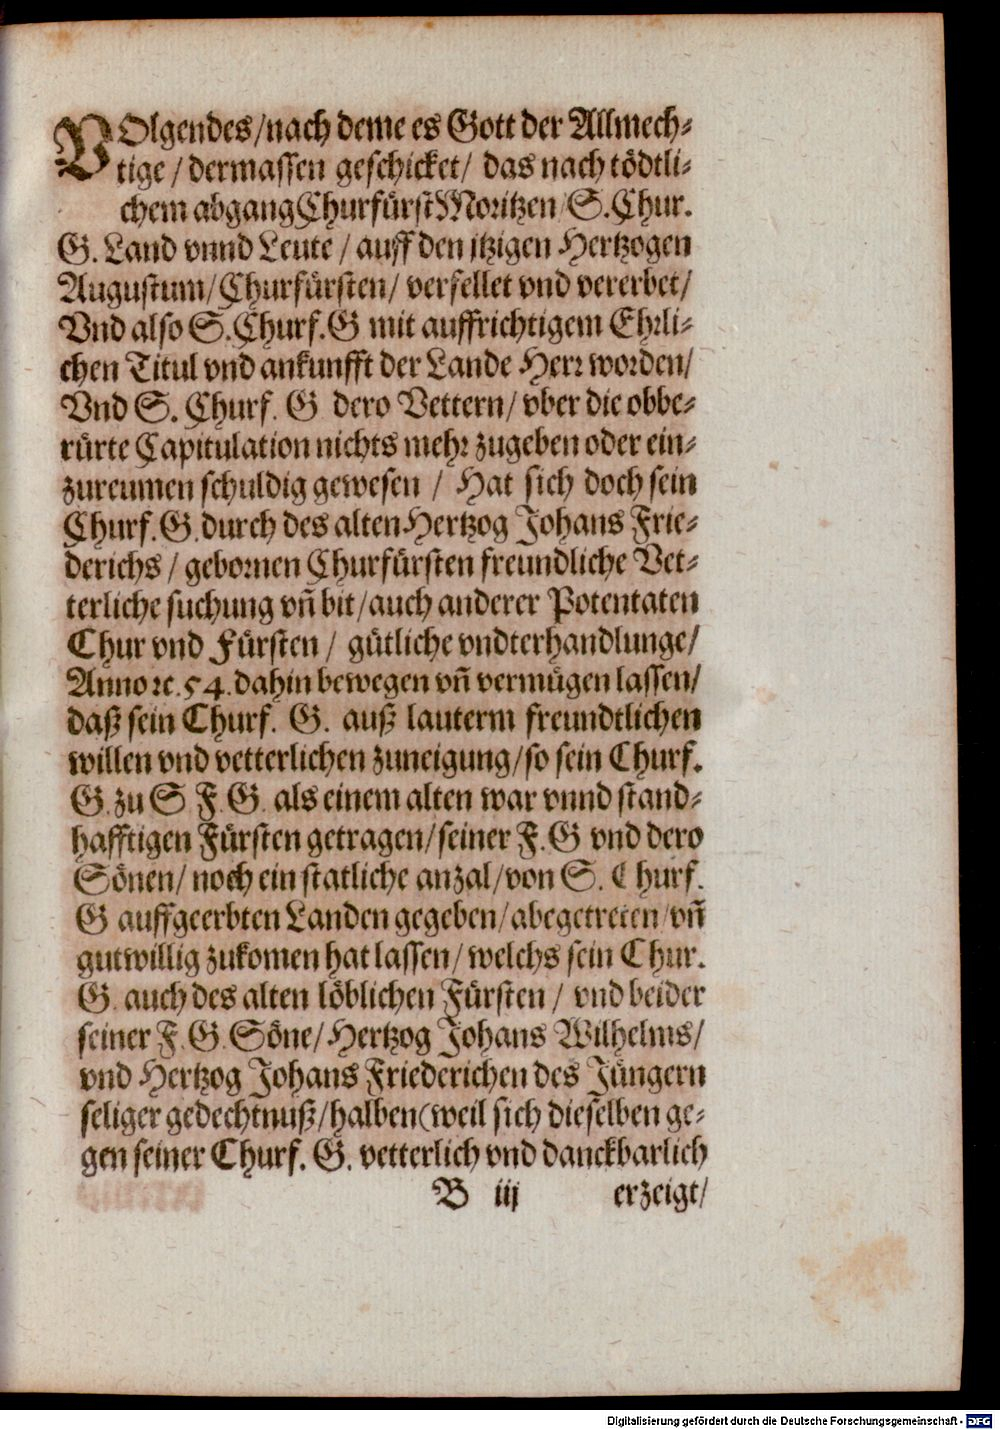 VOlgendes/nach deme es Gott der Allmech⸗
tige / dermassen geschicket/ das nach tödtli⸗
chem abgang Churfürst Moritzen/ S. Chur.
G. Land vnnd Leute / auff den itzigen Hertzogen
Augustum/ Churfürsten/ verfellet vnd vererbet/
Vnd also S. Churf. G mit auffrichtigem Ehrli⸗
chen Titul vnd ankunfft der Lande Herr worden/
Vnd S. Churf. G dero Vettern/ vber die obbe⸗
rürte Capitulation nichts mehr zugeben oder ein⸗
zureumen schuldig gewesen / Hat sich doch sein
Churf. G. durch des alten Hertzog Johans Frie⸗
derichs / gebornen Churfürsten freundliche Vet⸗
terliche suchung vñ bit/ auch anderer Potentaten
Chur vnd Fürsten / gütliche vndterhandlunge/
Anno ꝛc. 54. dahin bewegen vñ vermügen lassen/
daß sein Churf. G. auß lauterm freundtlichen
willen vnd vetterlichen zuneigung/ so sein Churf.
G. zu S. F. G. als einem alten war vnnd stand⸗
hafftigen Fürsten getragen/ seiner F. G vnd dero
Sönen/ noch ein statliche anzal/ von S. Churf.
G auffgeerbten Landen gegeben/ abegetreten/ vñ
gutwillig zukomen hat lassen/ welchs sein Chur.
G. auch des alten löblichen Fürsten / vnd beider
seiner F. G. Söne/ Hertzog Johans Wilhelms/
vnd Hertzog Johans Friederichen des Jüngern
seliger gedechtnuß/ halben (weil sich dieselben ge⸗
gen seiner Churf. G. vetterlich vnd danckbarlich
B iij erzeigt/
Digitalisierung gefördert durch die Deutsche Forschungsgemeinschaft - DFG